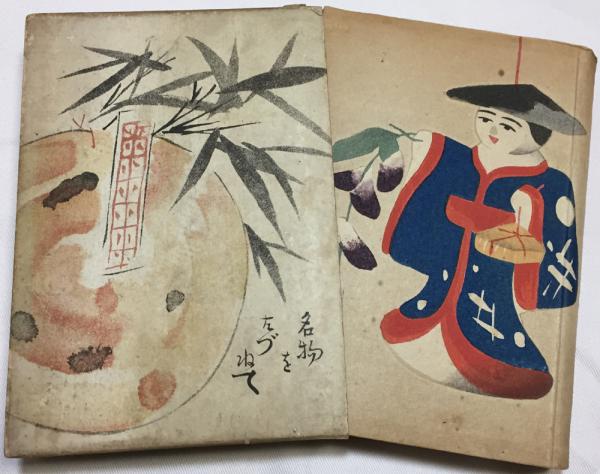 名物
を
たづ
ねて